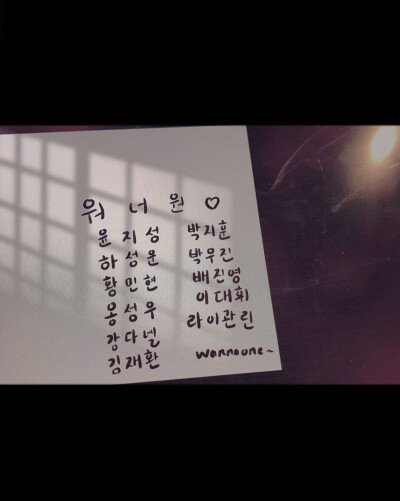 워너원♡
윤지성
하성운
황민현
옹성우
강다넬
김재환
박지훈
박우진
배진영
이대휘
라이관린
wannaone~